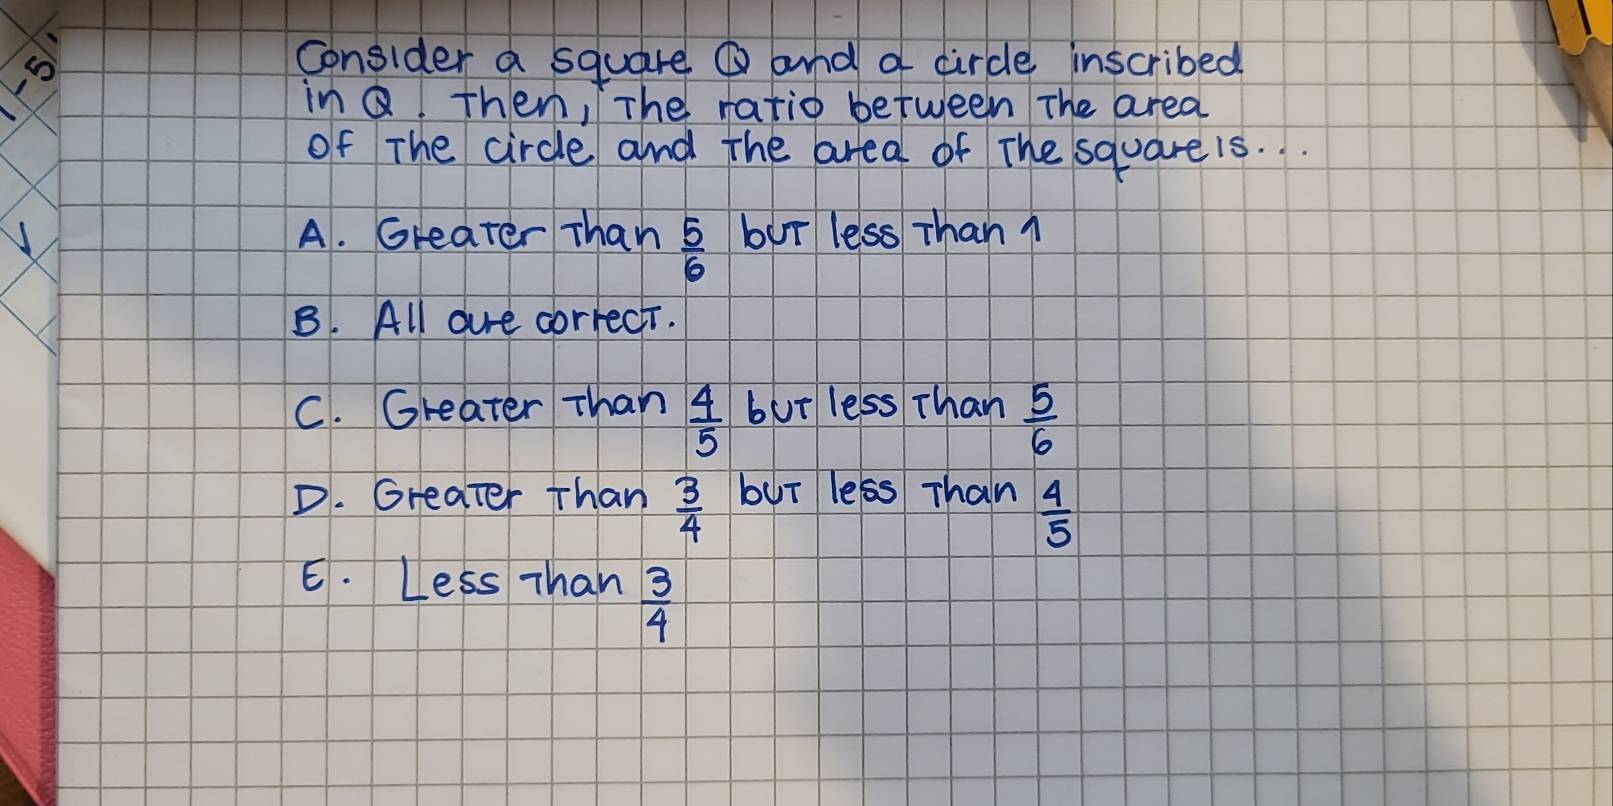 -5
Consider a square Q and a circle inscribed
in Q. Then, The ratio between The area
of The circle and The area of The square is...
A. Greater Than 5/6 but less Than 1
B. All are correct.
C. Greater Than 4/5 but less Than 5/6
D. Greater Than 3/4 but less Than 4/5
E. Less Than 3/4